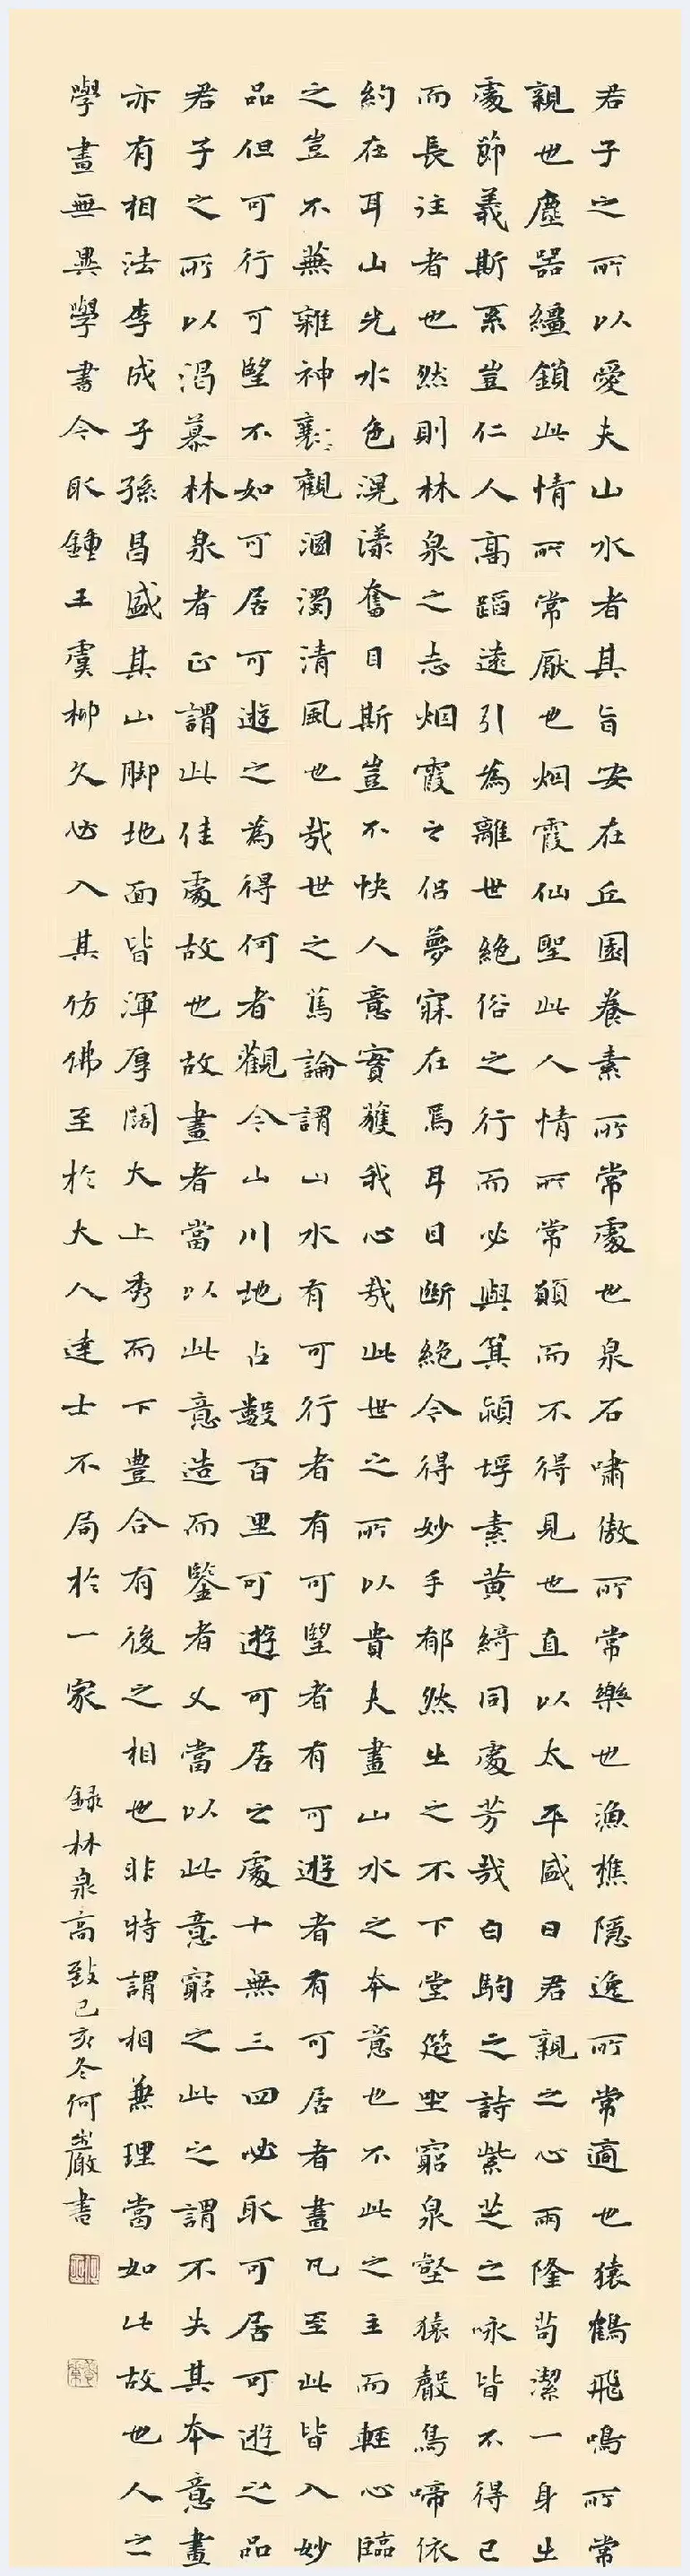 君子之所以愛夫山水者其旨安在丘園養素所常處也泉石嘯傲所常樂也漁樵隱逸所常適也猿鶴飛鳴所常
親也塵嚣繮鎖此情所常厭也烟霞仙聖此人情所常願而不得見也直以太平盛日君親之心兩隆苟潔一身出
處節義斯系豈仁人高蹈遠引為離世絕俗之行而必與箕潁埒素黃綺同處芳哉白駒之詩紫芝之咏皆不得已
而長往者也然則林泉之志烟霞之侶夢寐在焉耳目斷絕令得妙手郁然出之不下堂筵坐窮泉壑猿聲鳥啼依
約在耳山光水色滉漾奪目斯豈不快人意實獲我心哉此世之所以貴夫畫山水之本意也不此之主而輕心臨
之豈不蕪雜神襄觀溷濁清風也哉世之篤論謂山水有可行者有可望者有可遊者有可居者畫凡至此皆入妙
品但可行可望不如可居可遊之為得何者觀今山川地占數百里可遊可居之處十無三四必取可居可遊之品
君子之所以渴慕林泉者正謂此佳處故也故畫者當以此意造而鑒者又當以此意窮之此之謂不失其本意畫
亦有相法李成子孫昌盛其山脚地面皆渾厚闊大上秀而下豊合有後之相也非特謂相兼理當如此故也人之
學畫無異學書今取鍾王虞柳久必入其仿佛至於大人達士不局於一家
録林泉高致己亥冬何巖書